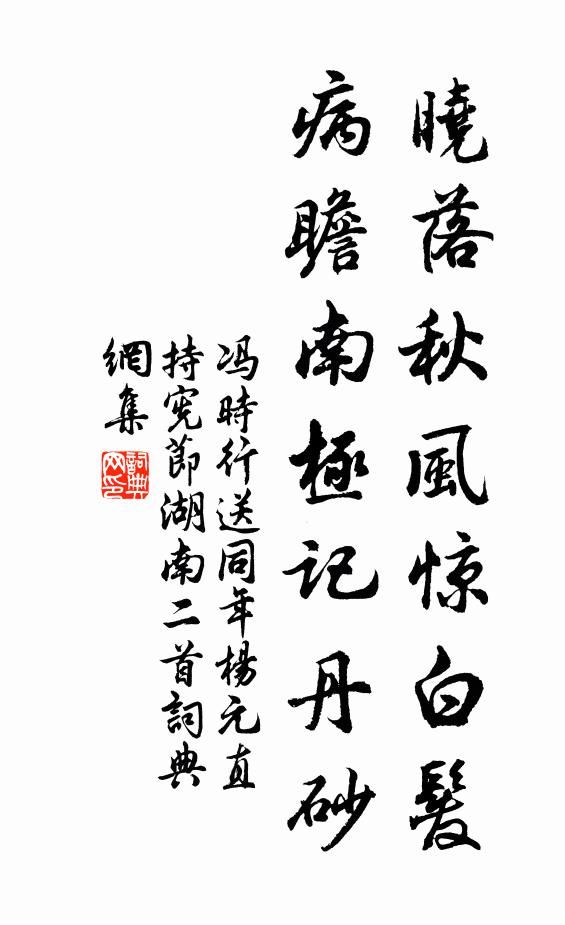 曉落秋風惊白髮
病瞻南極記丹砂
冯時行送同年楊元直
持宪節湖南二首詞典
網集
詞典
网印